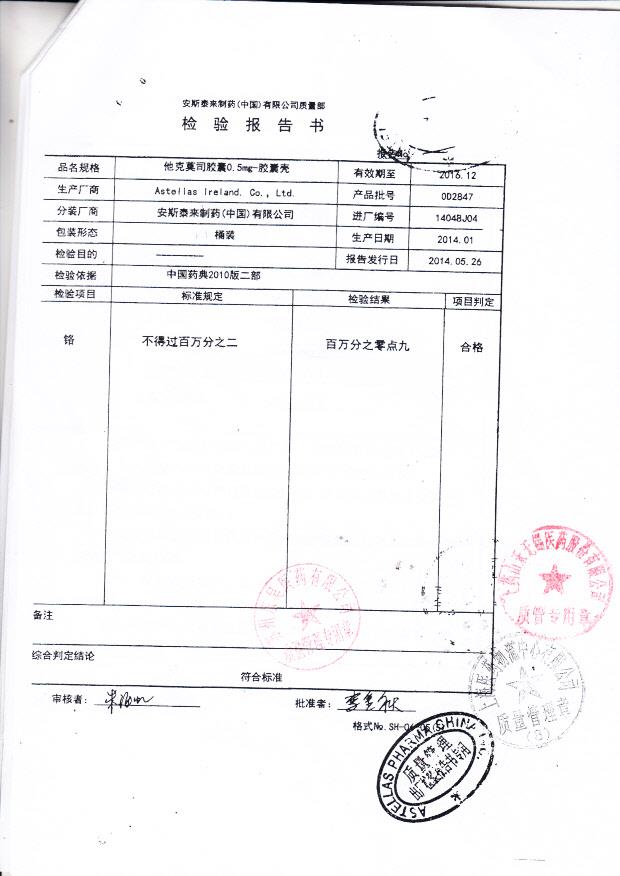 安斯泰来制药(中国)有限公司质量部
检验报告书
品名规格 他克莫司胶囊0.5mg-胶囊壳 有效期至 2016.12
生产厂商 Astellas Ireland. Co., Ltd. 产品批号 0D2847
分装厂商 安斯泰来制药(中国)有限公司 进厂编号 14048J04
包装形态 桶装 生产日期 2014.01
检验目的 ———— 报告发行日 2014.05.26
检验依据 中国药典2010版二部
检验项目 标准规定 检验结果 项目判定
铬 不得过百万分之二 百万分之零点九 合格
备注
综合判定结论
符合标准
审核者: 批准者:
格式No.SH-04-
医药有限公司
质管专用章
质量管理章
(8)
ASTELLAS PHARMA CHINA, INC.
质量管理